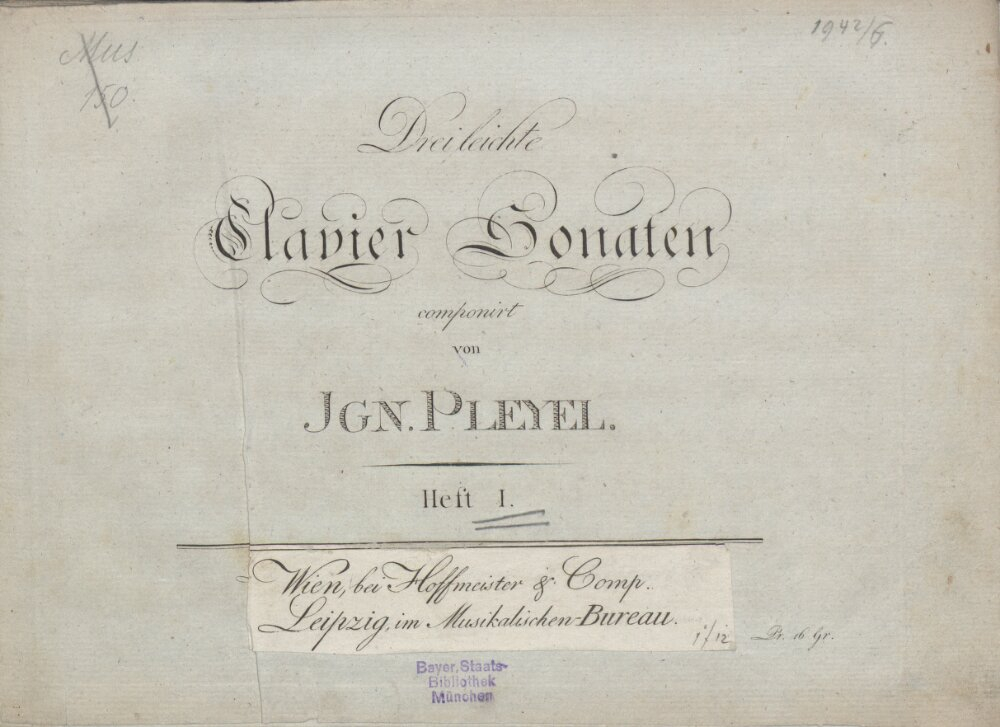 Mus
150.
1942/6.
Drei leichte
Clavier Sonaten
componirt
von
JGN. PLEYEL.
Heft I.
Wien, bei Hoffmeister & Comp.
Leipzig, im Musikalischen-Bureau.
Pr. 16 Gr.
Bayer. Staats-
Bibliothek
München